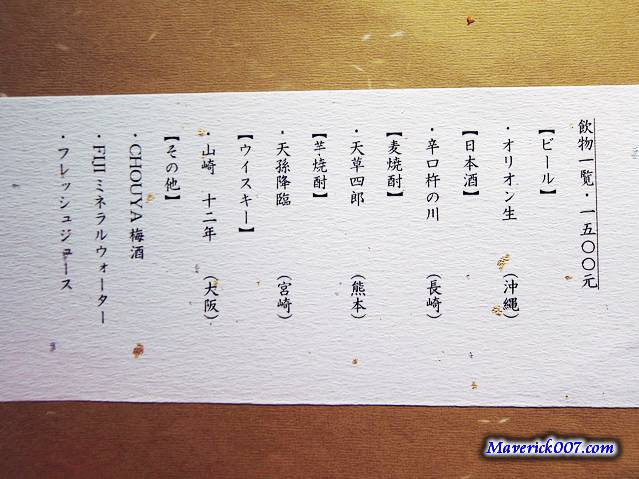 飲物一覧・一五〇〇元
【ビール】
・オリオン生 (沖縄)
【日本酒】
・辛口杵の川 (長崎)
【麦焼酎】
・天草四郎 (熊本)
【芋焼酎】
・天孫降臨 (宮崎)
【ウイスキー】
・山崎 十二年 (大阪)
【その他】
・CHOUYA 梅酒
・FIJI ミネラルウォーター
・フレッシュジュース
Maverick007.com